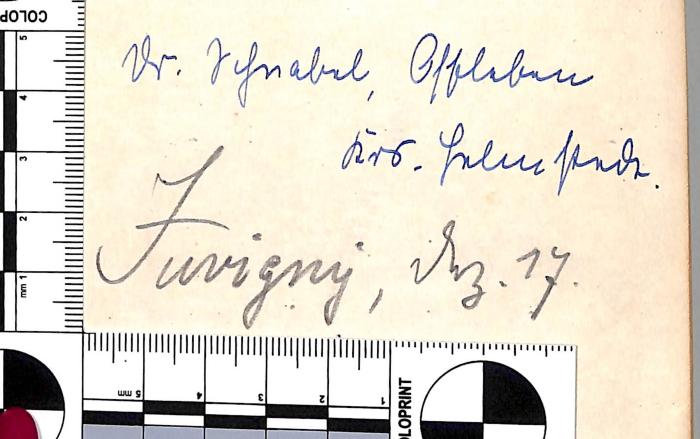 COLOP
5
4
3
2
mm 1
Dr. Schnabel, Offleben
Krs. Helmstedt.
Juvigny, Dez. 17.
5 mm
4
3
2
1
OLOPRINT